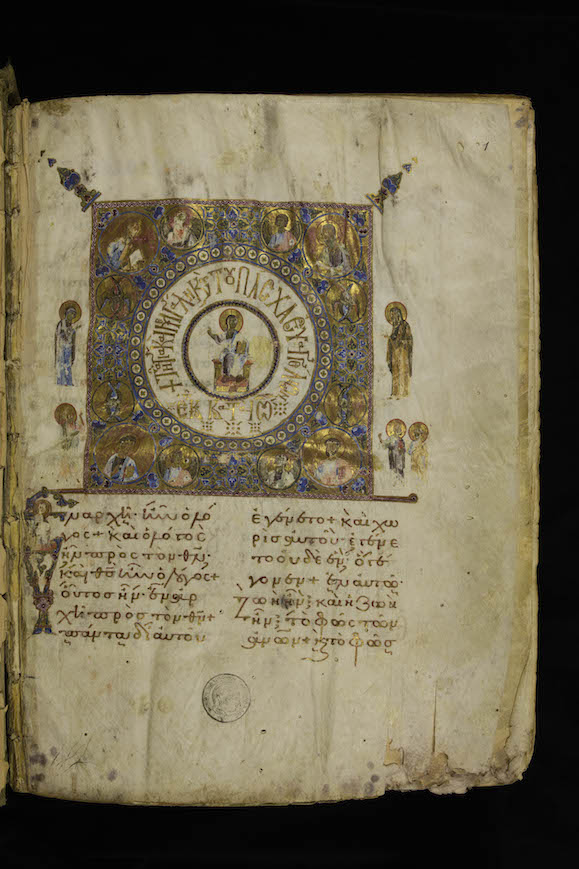 ΤΟΥ ΠΑΣΧΑ ΕΥ
ΕΚ Κ Τ ΙΩ
Ἐν ἀρχῇ ἦν ὁ λό
γος + καὶ ὁ λόγος
ἦν πρὸς τὸν θν·
καὶ θς ἦν ὁ λόγος +
οὗτος ἦν ἐν ἀρ
χῇ πρὸς τὸν θν +
πάντα δι αὐτοῦ
ἐγένετο + καὶ χω
ρὶς αὐτοῦ ἐγένε
το οὐδὲ ἕν· ὃ γέ
γονεν + ἐν αὐτῷ
ζωὴ ἦν· καὶ ἡ ζωὴ
ἦν τὸ φῶς τῶν
ἀνων + κ τὸ φῶς